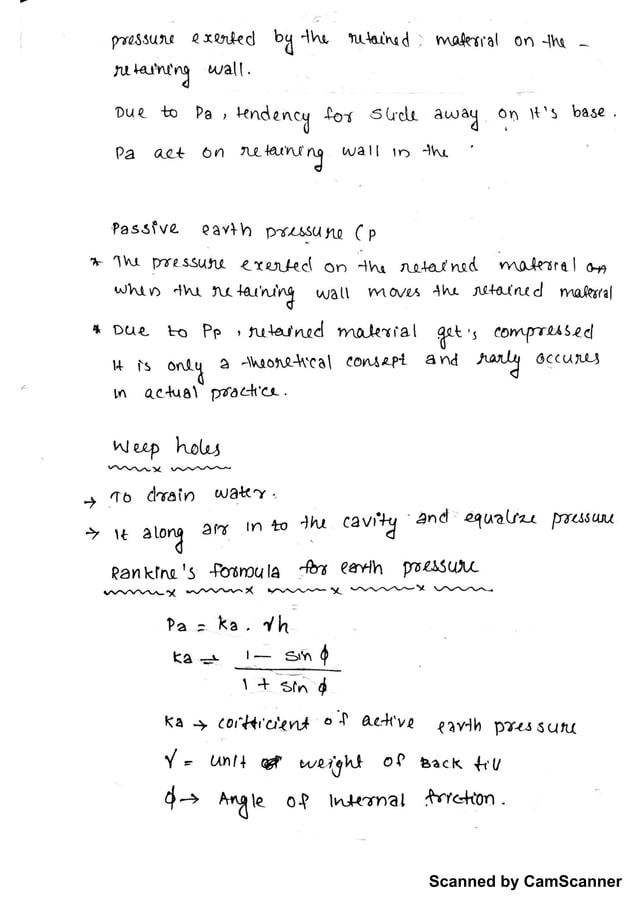 pressure exerted by the retained material on the -
retaining wall.
Due to Pa, tendency for slide away on it's base.
Pa act on retaining wall in the
Passive earth pressure (P
* The pressure exerted on the retained material on
when the retaining wall moves the retained material
* Due to Pp, retained material get's compressed
It is only a theoretical consept and rarly occures
in actual practice.
Weep holes
→ To drain water.
→ It along air in to the cavity and equalize pressure
Rankine's formula for earth pressure
Pa = ka . γh
ka = 1 - sin φ
1 + sin φ
ka → coifficient of active earth pressure
γ = unit weight of Back fill
φ → Angle of Internal friction.
Scanned by CamScanner